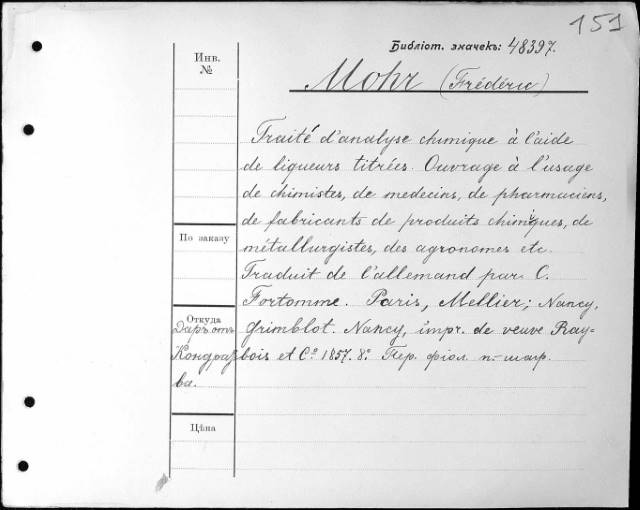 151
Библіот. значекъ: 48397.
Инв.
№
Mohr (Frédéric)
Traité d'analyse chimique à l'aide
de liqueurs titrées. Ouvrage à l'usage
de chimistes, de medecins, de pharmaciens,
de fabricants de produits chimiques, de
По заказу
métallurgistes, des agronomes etc.
Traduit de l'allemand par C.
Fortomme. Paris, Mellier; Nancy,
Откуда
Даръ отъ
Grimblot. Nancy, impr. de veuve Ray-
Кондра
bois et Cº. 1857. 8º. Пер. фіол. п.-шагр.
ва.
Цѣна